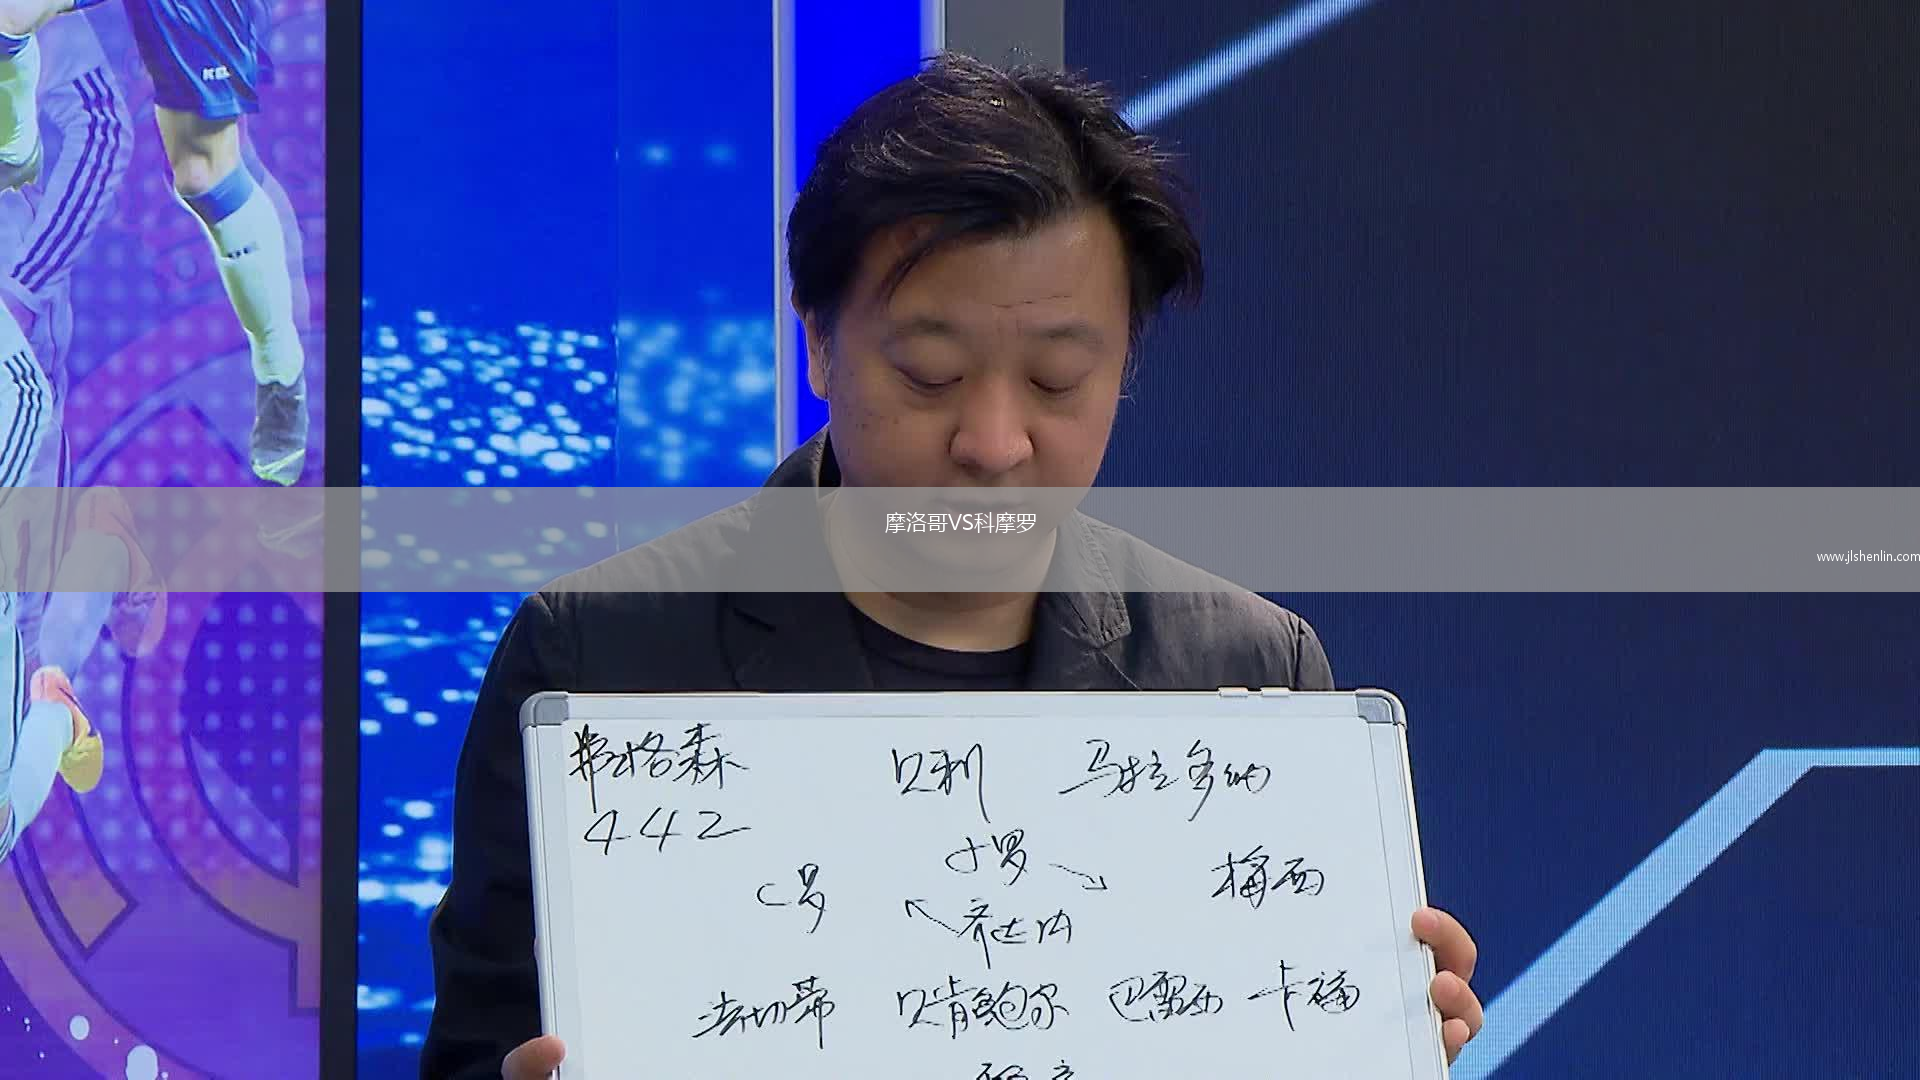 KELME
摩洛哥VS科摩罗
www.jlshenlin.com
弗格森 贝利 马拉多纳
442
小罗
C罗 梅西
齐达内
法切蒂 贝肯鲍尔 巴雷西 卡福